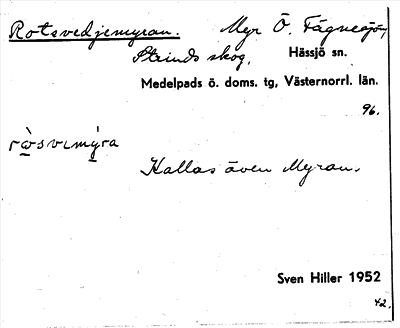 Rotsvedjemyran. Myr Ö. Fågnesjön,
skog, Hässjö sn.
Medelpads ö. doms. tg, Västernorrl. län.
96.
ràsvımýra
Kallas även Myran.
Sven Hiller 1952
42.